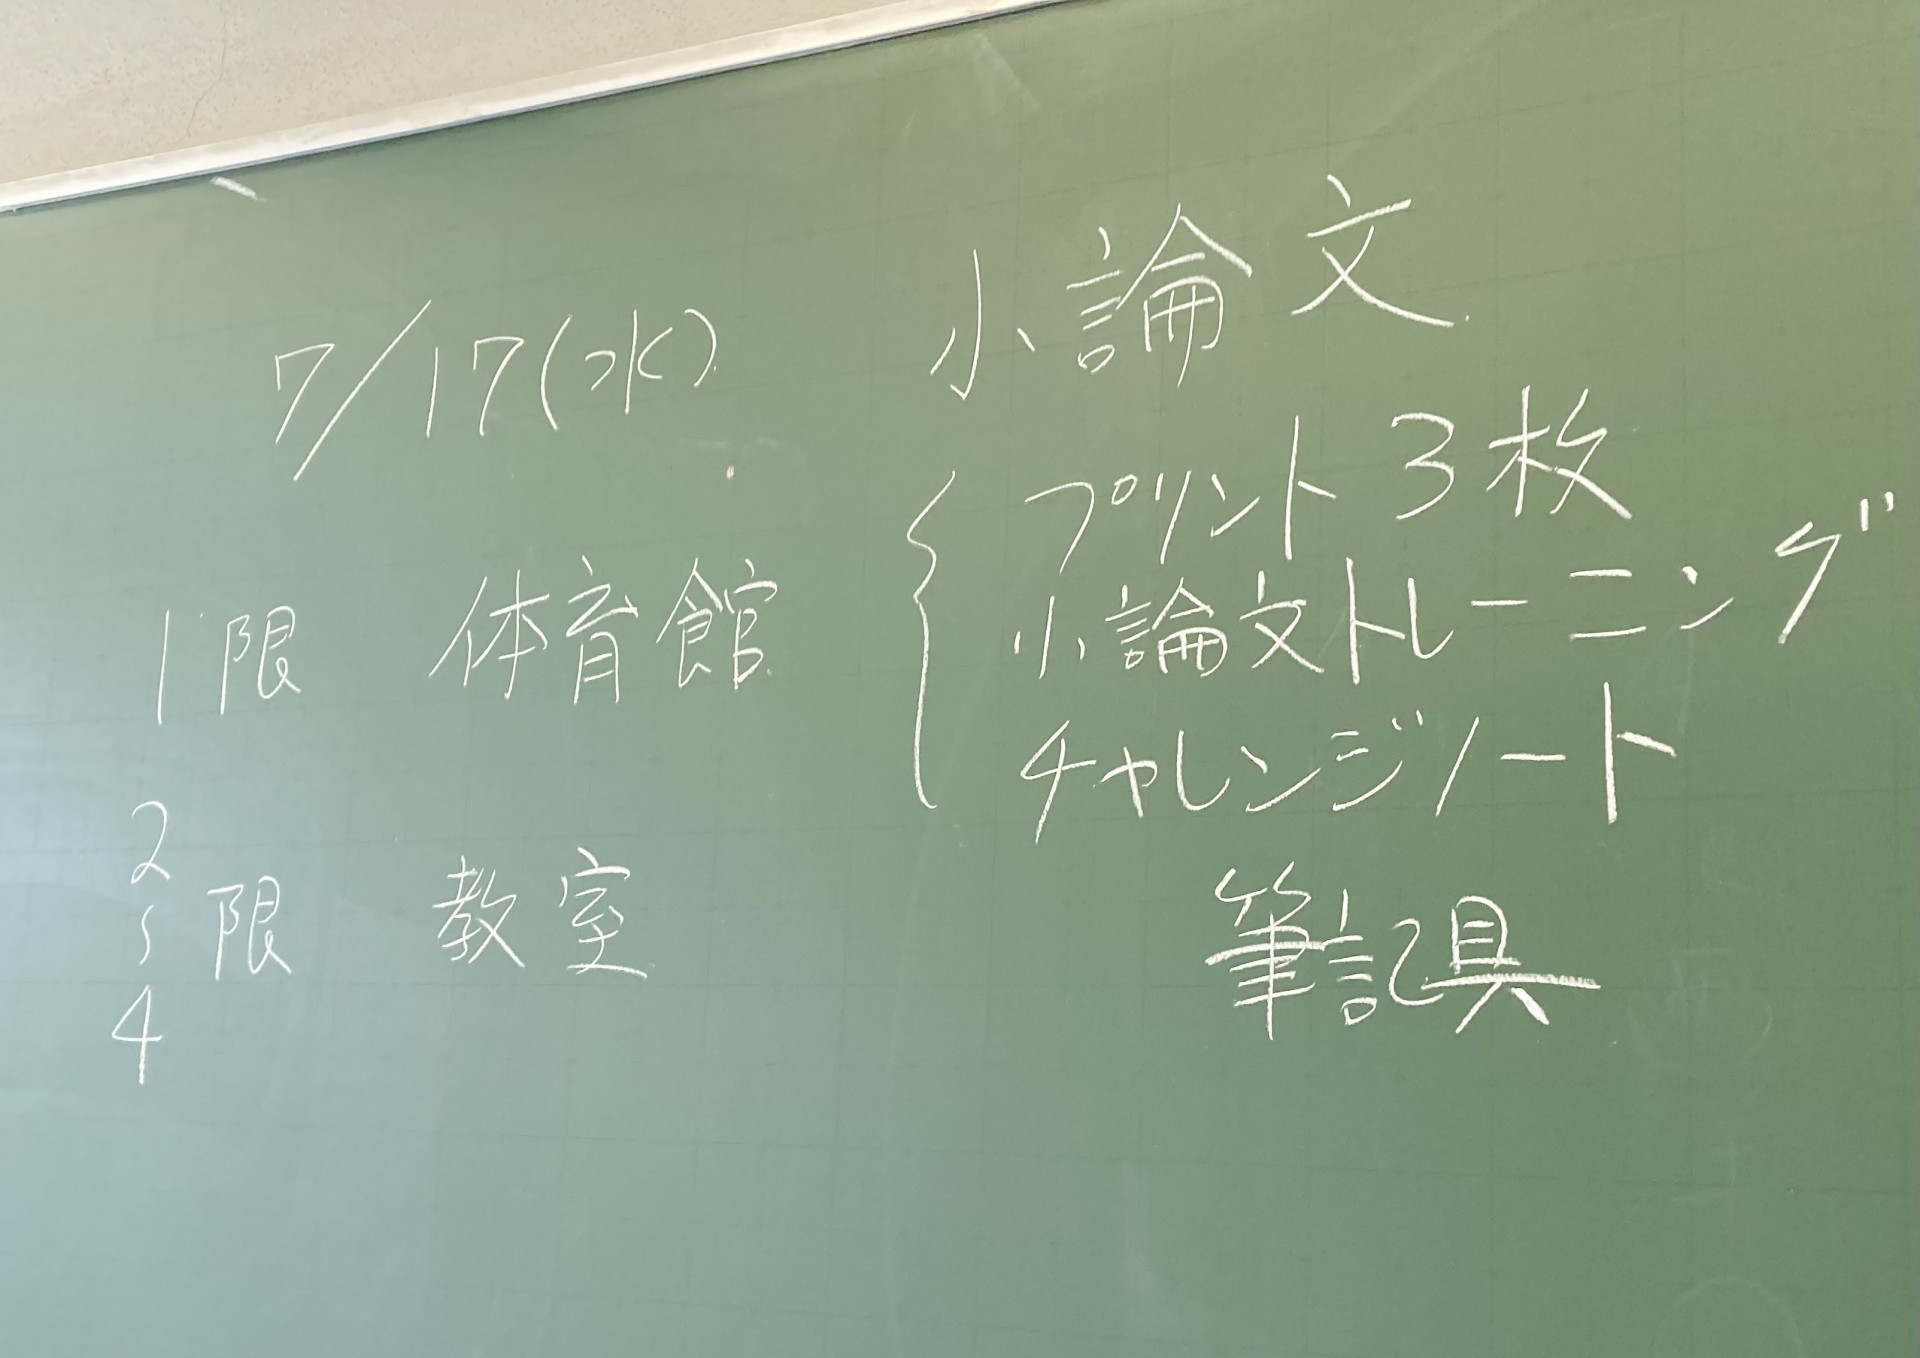 7/17(水)
1限 体育館
2〜4限 教室
小論文
プリント3枚
小論文トレーニング
チャレンジノート
筆記具